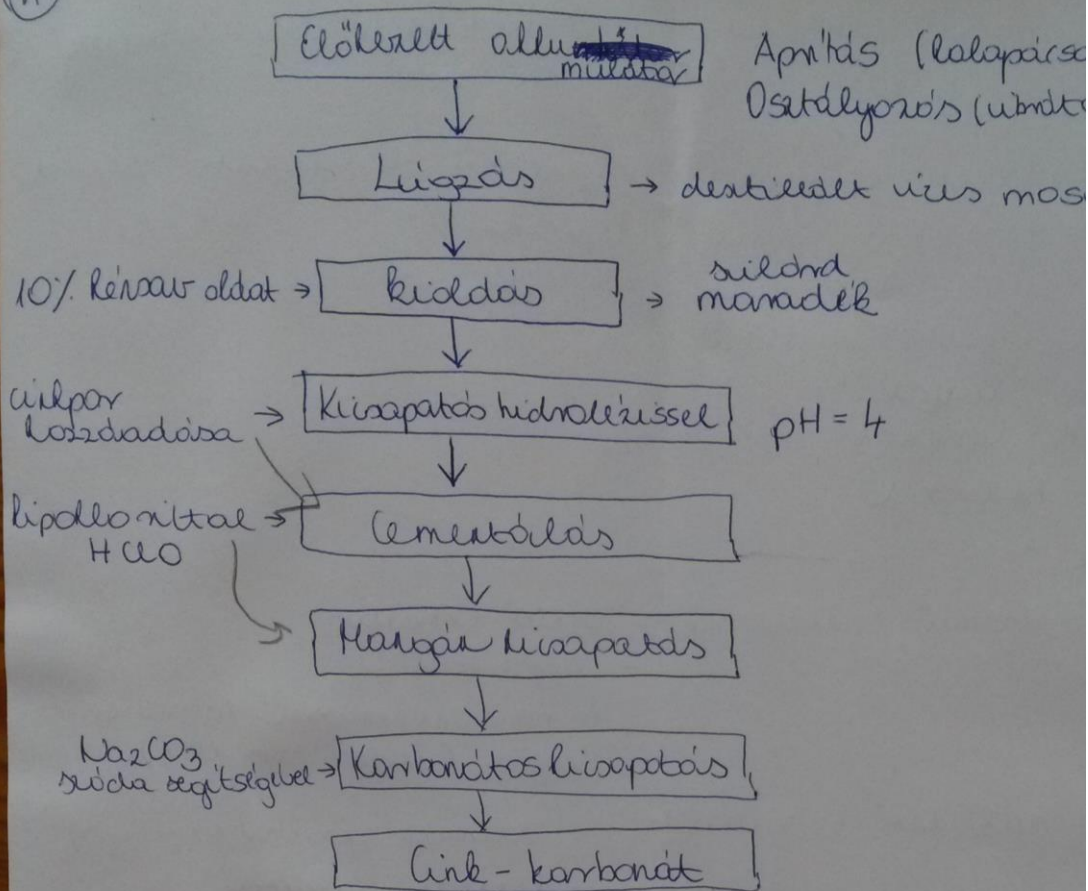 Előkezelt akku
mulátor
Aprítás (kalapácso
Osztályozás (vibrát
Lúgzás → desztillált vizes mos
10% kénsav oldat → kioldás → szilárd
maradék
cinkpor
hozzáadása → Kicsapatás hidrolízissel pH = 4
hipoklorittal → Cementálás
HClO
Mangán kicsapatás
Na2CO3
szóda segítségével → Karbonátos kicsapatás
Cink - karbonát